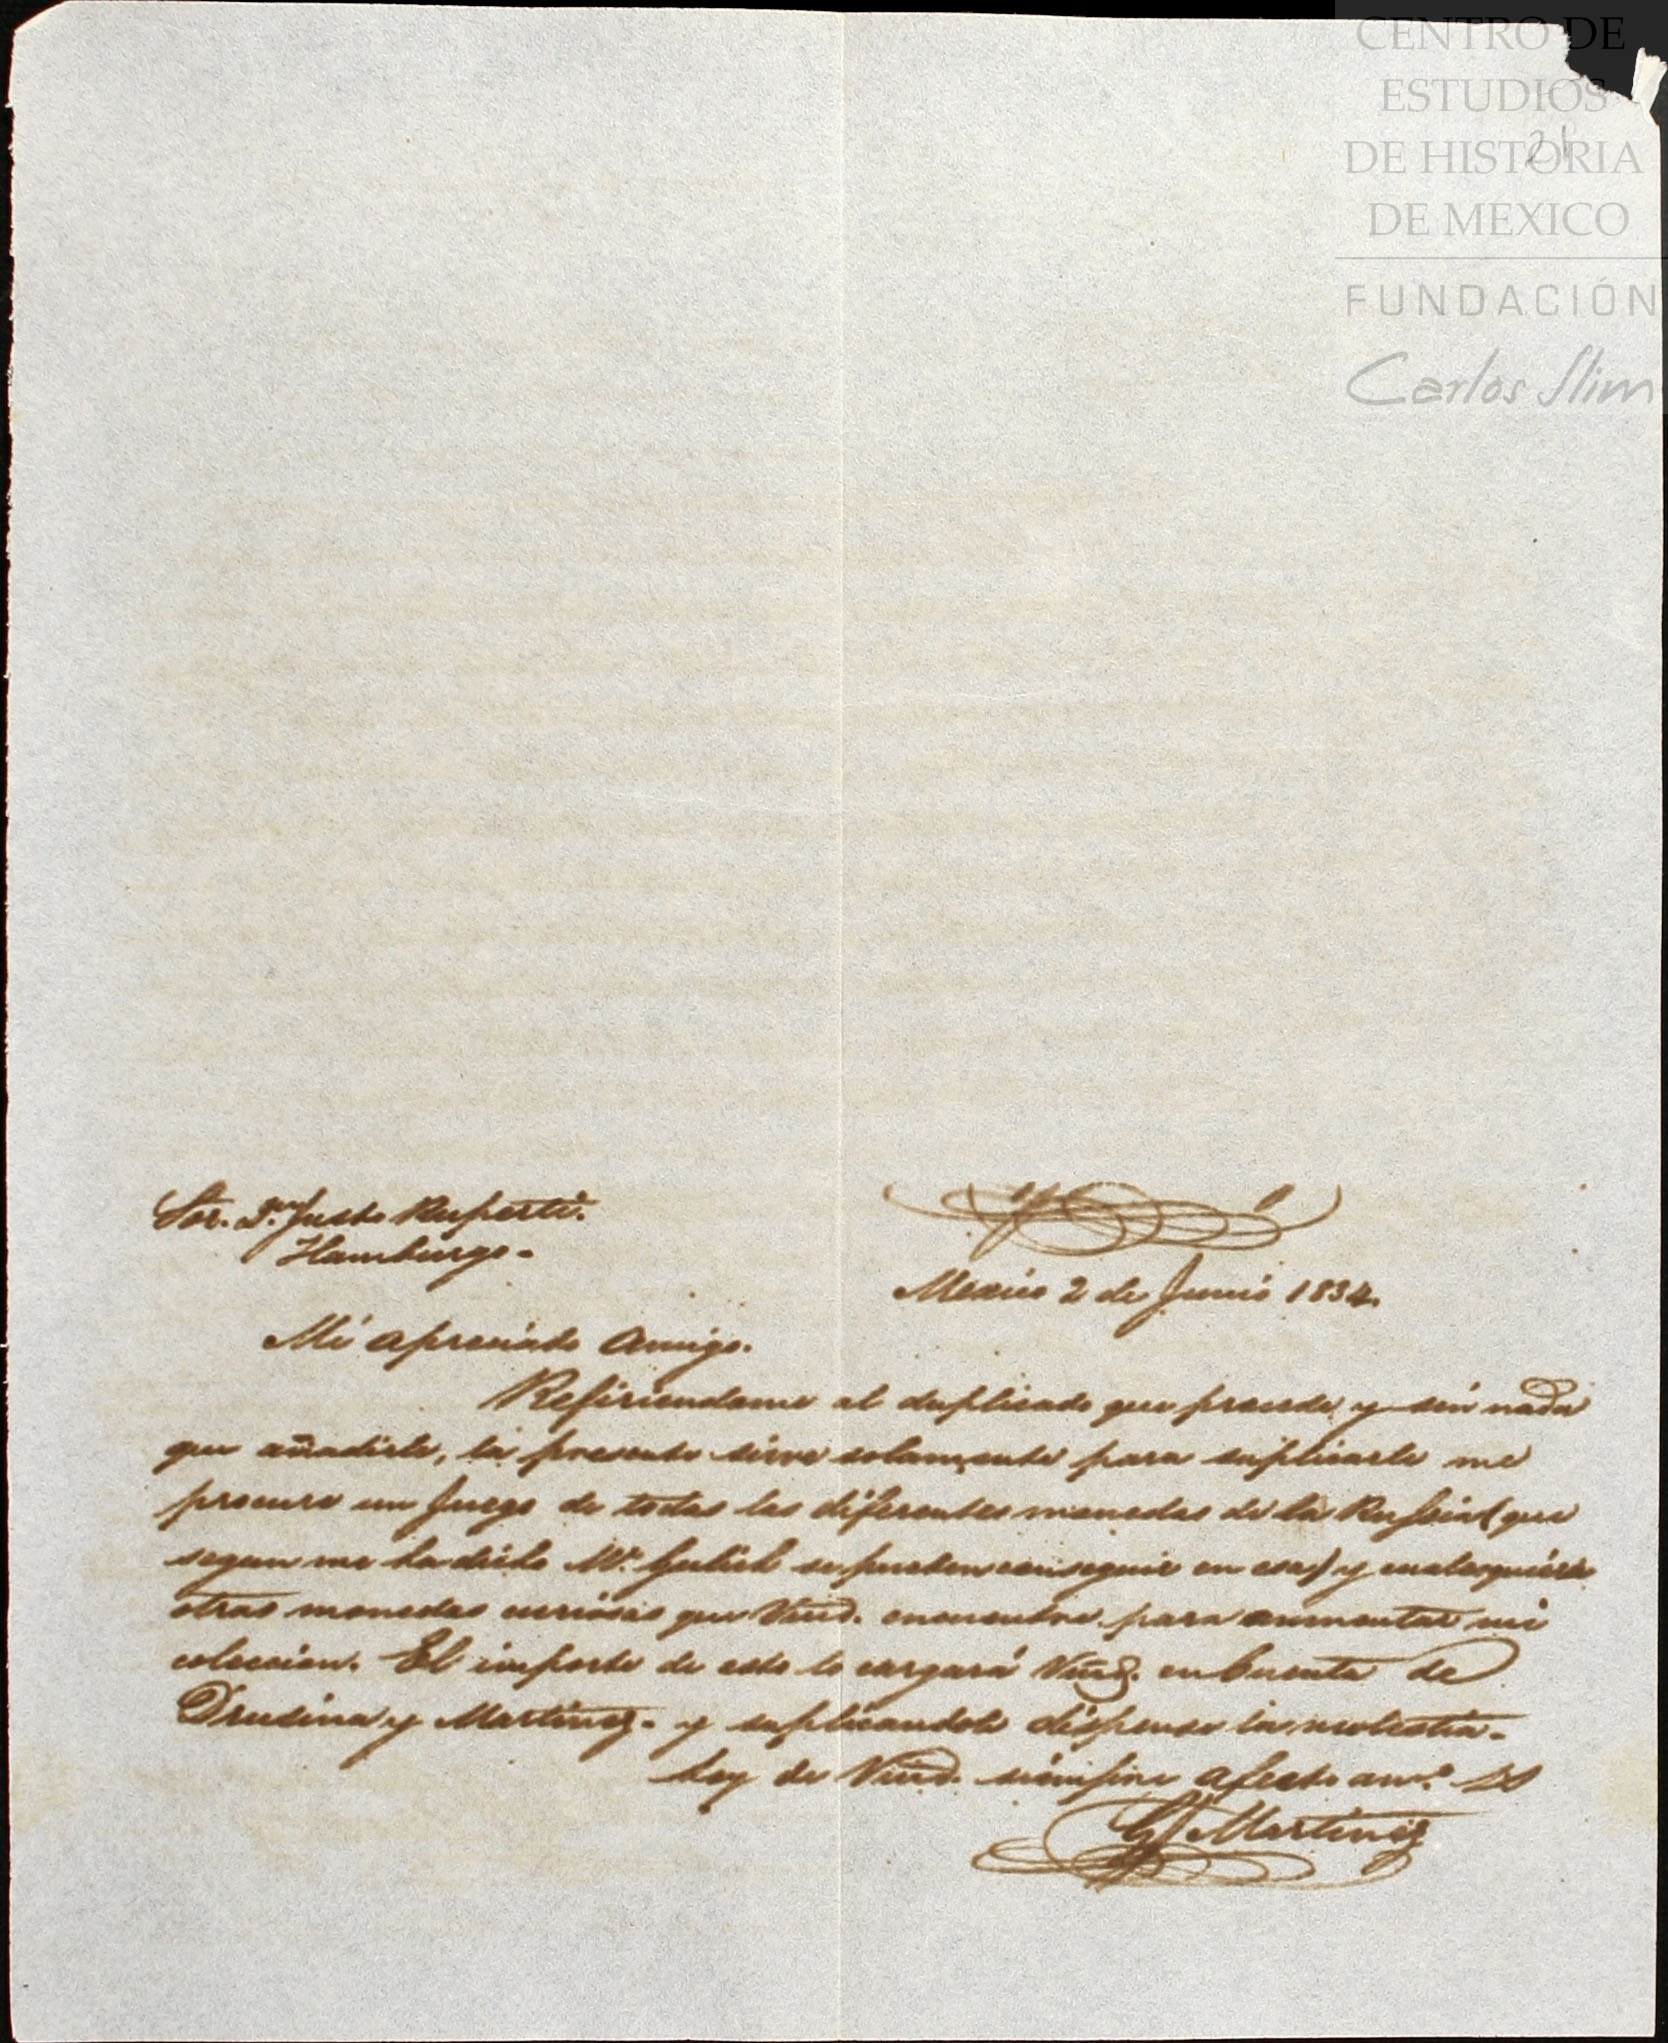 CENTRO DE
ESTUDIOS
DE HISTORIA
DE MEXICO
FUNDACIÓN
Carlos Slim
21
Sor. Dn. Justo Ruperti.
Hamburgo.
Mexico 2 de Junio 1834.
Mi apreciado Amigo.
Refiriendome al duplicado que precede, y sin nada
que añadirle, la presente sirve solamente para suplicarle me
procure un Juego de todas las diferentes monedas de la Russia (que
segun me ha dicho Mr. se pueden conseguir en esa) y cualesquiera
otras monedas curiosas que Vmd. encuentre para aumentar mi
coleccion. El importe de esto lo cargará Vmd. en Cuenta de
Drusina y Martinez. y suplicandole dispense la molestia.
Soy de Vmd. siempre afecto amo. SS
Martinez